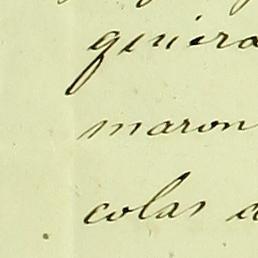 quiera
maron
colas a